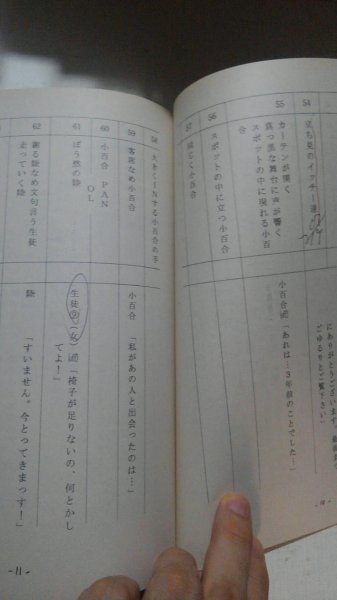 54
立ち見のイッチー達
にありがとうございます。
ごゆるりとご覧下さい」
55
カーテンが開く
真っ黒な舞台に声が響く
スポットの中に現れる小百
合
小百合
「あれは…3年前のことでした…」
56
スポットの中に立つ小百合
57
58
火をくINする小百合の手
59
客席なめ小百合
小百合
「私があの人と出会ったのは…」
60
小百合 PAN
OL
61
ぼう然の陸
生徒⑨(女)
「椅子が足りないの、何とかし
てよ!」
62
謝る陸なめ文句言う生徒
走っていく陸
陸
「すいません。今とってきまっす!」
-11-